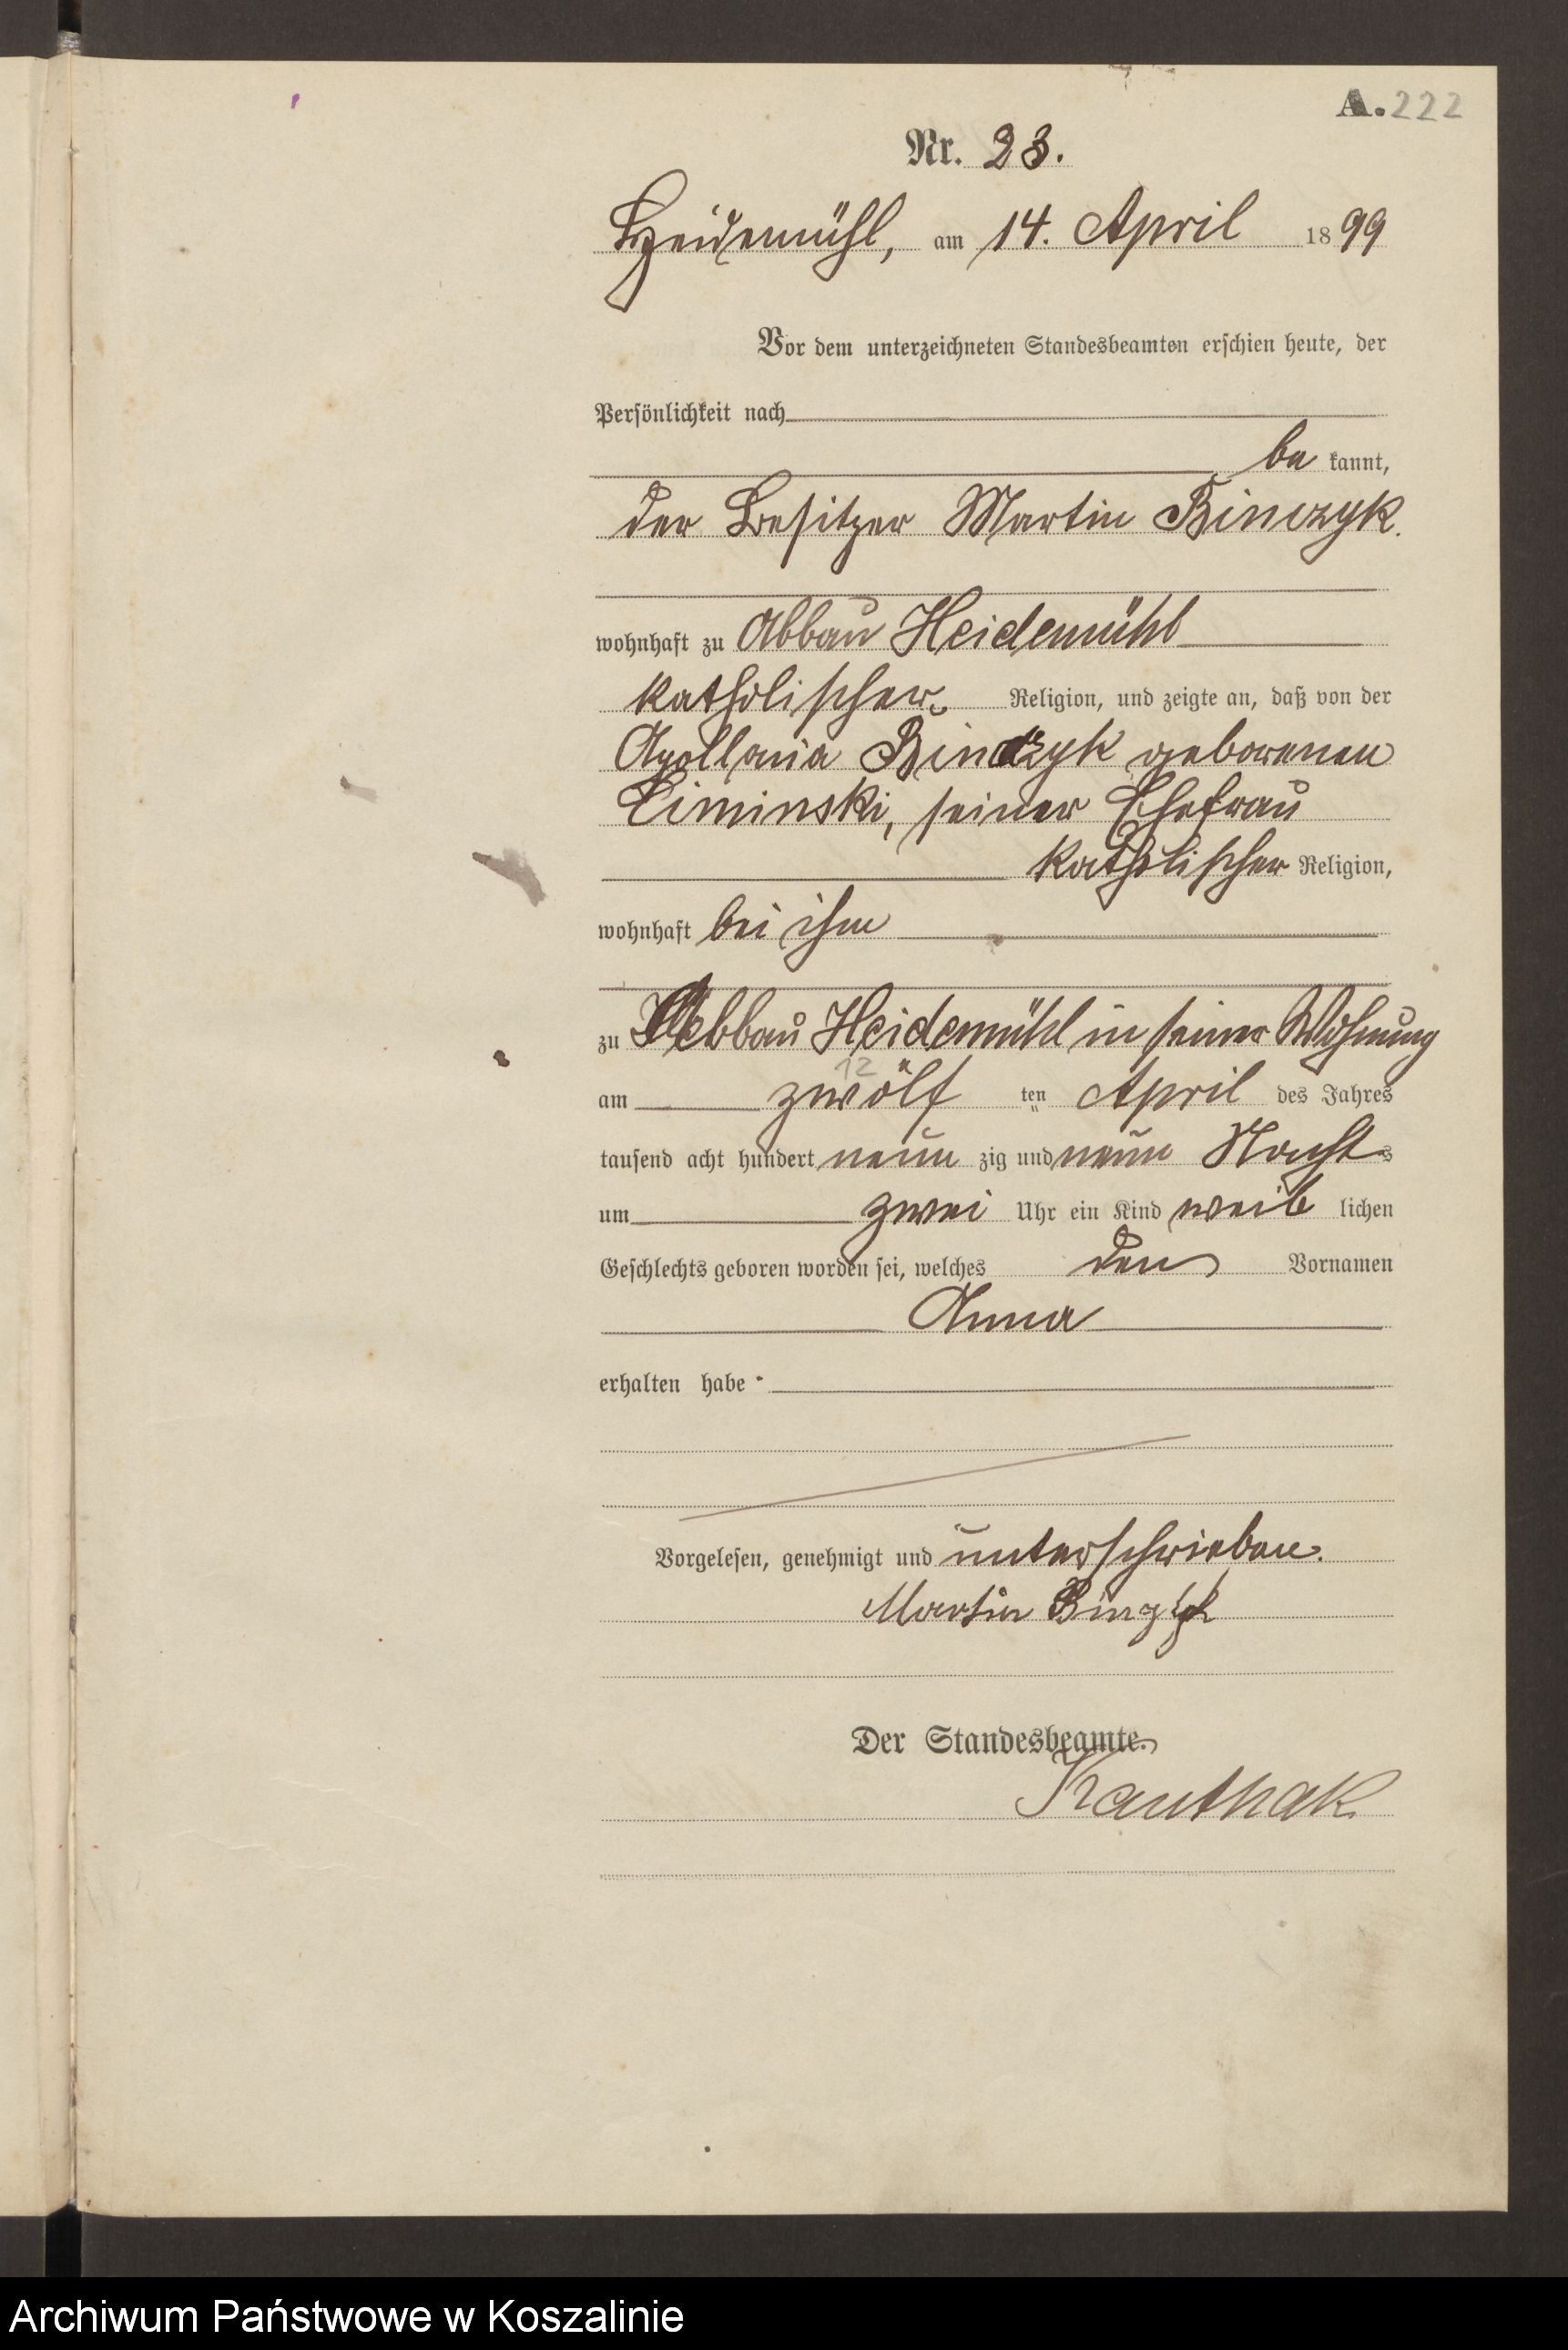 A. 222
Nr. 23.
Heidemühl, am 14. April 1899
Vor dem unterzeichneten Standesbeamten erschien heute, der
Persönlichkeit nach
be kannt,
der Besitzer Martin Binczyk.
wohnhaft zu Abbau Heidemühl
katholischer Religion, und zeigte an, daß von der
Apollonia Binczyk geborenen
Ciminski, seiner Ehefrau
katholischer Religion,
wohnhaft bei ihm
zu Abbau Heidemühl in seiner Wohnung
12
am zwölf ten April des Jahres
tausend acht hundert neun zig und neun Nachts
um zwei Uhr ein Kind weib lichen
Geschlechts geboren worden sei, welches den Vornamen
Anna
erhalten habe
Vorgelesen, genehmigt und unterschrieben.
Martin
Der Standesbeamte.
Kauthak
Archiwum Państwowe w Koszalinie